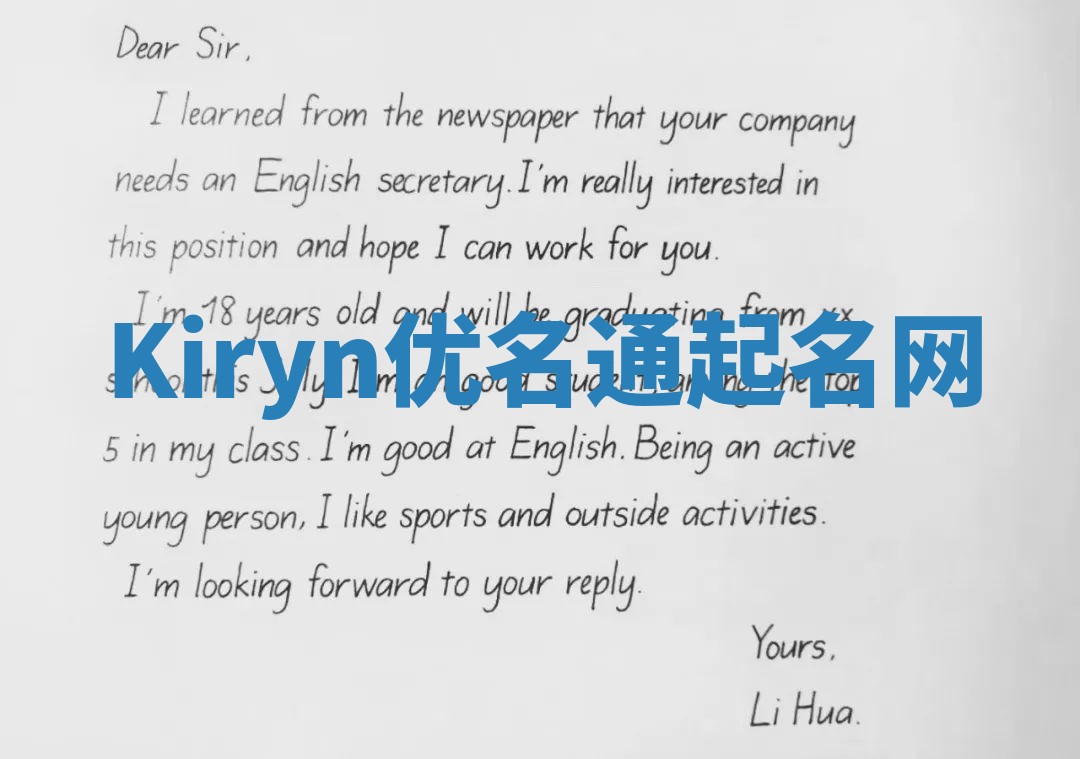 Dear Sir,
I learned from the newspaper that your company
needs an English secretary. I'm really interested in
this position and hope I can work for you.
I'm 18 years old and will be graduating from xx
Kiryn优名通起名网
this July. I'm good student, among the top
5 in my class. I'm good at English. Being an active
young person, I like sports and outside activities.
I'm looking forward to your reply.
Yours,
Li Hua.